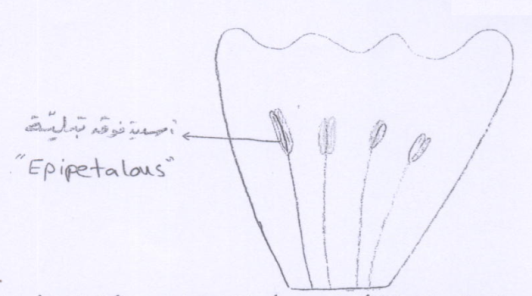 أسدية فوقه بتليّة
"Epipetalous"